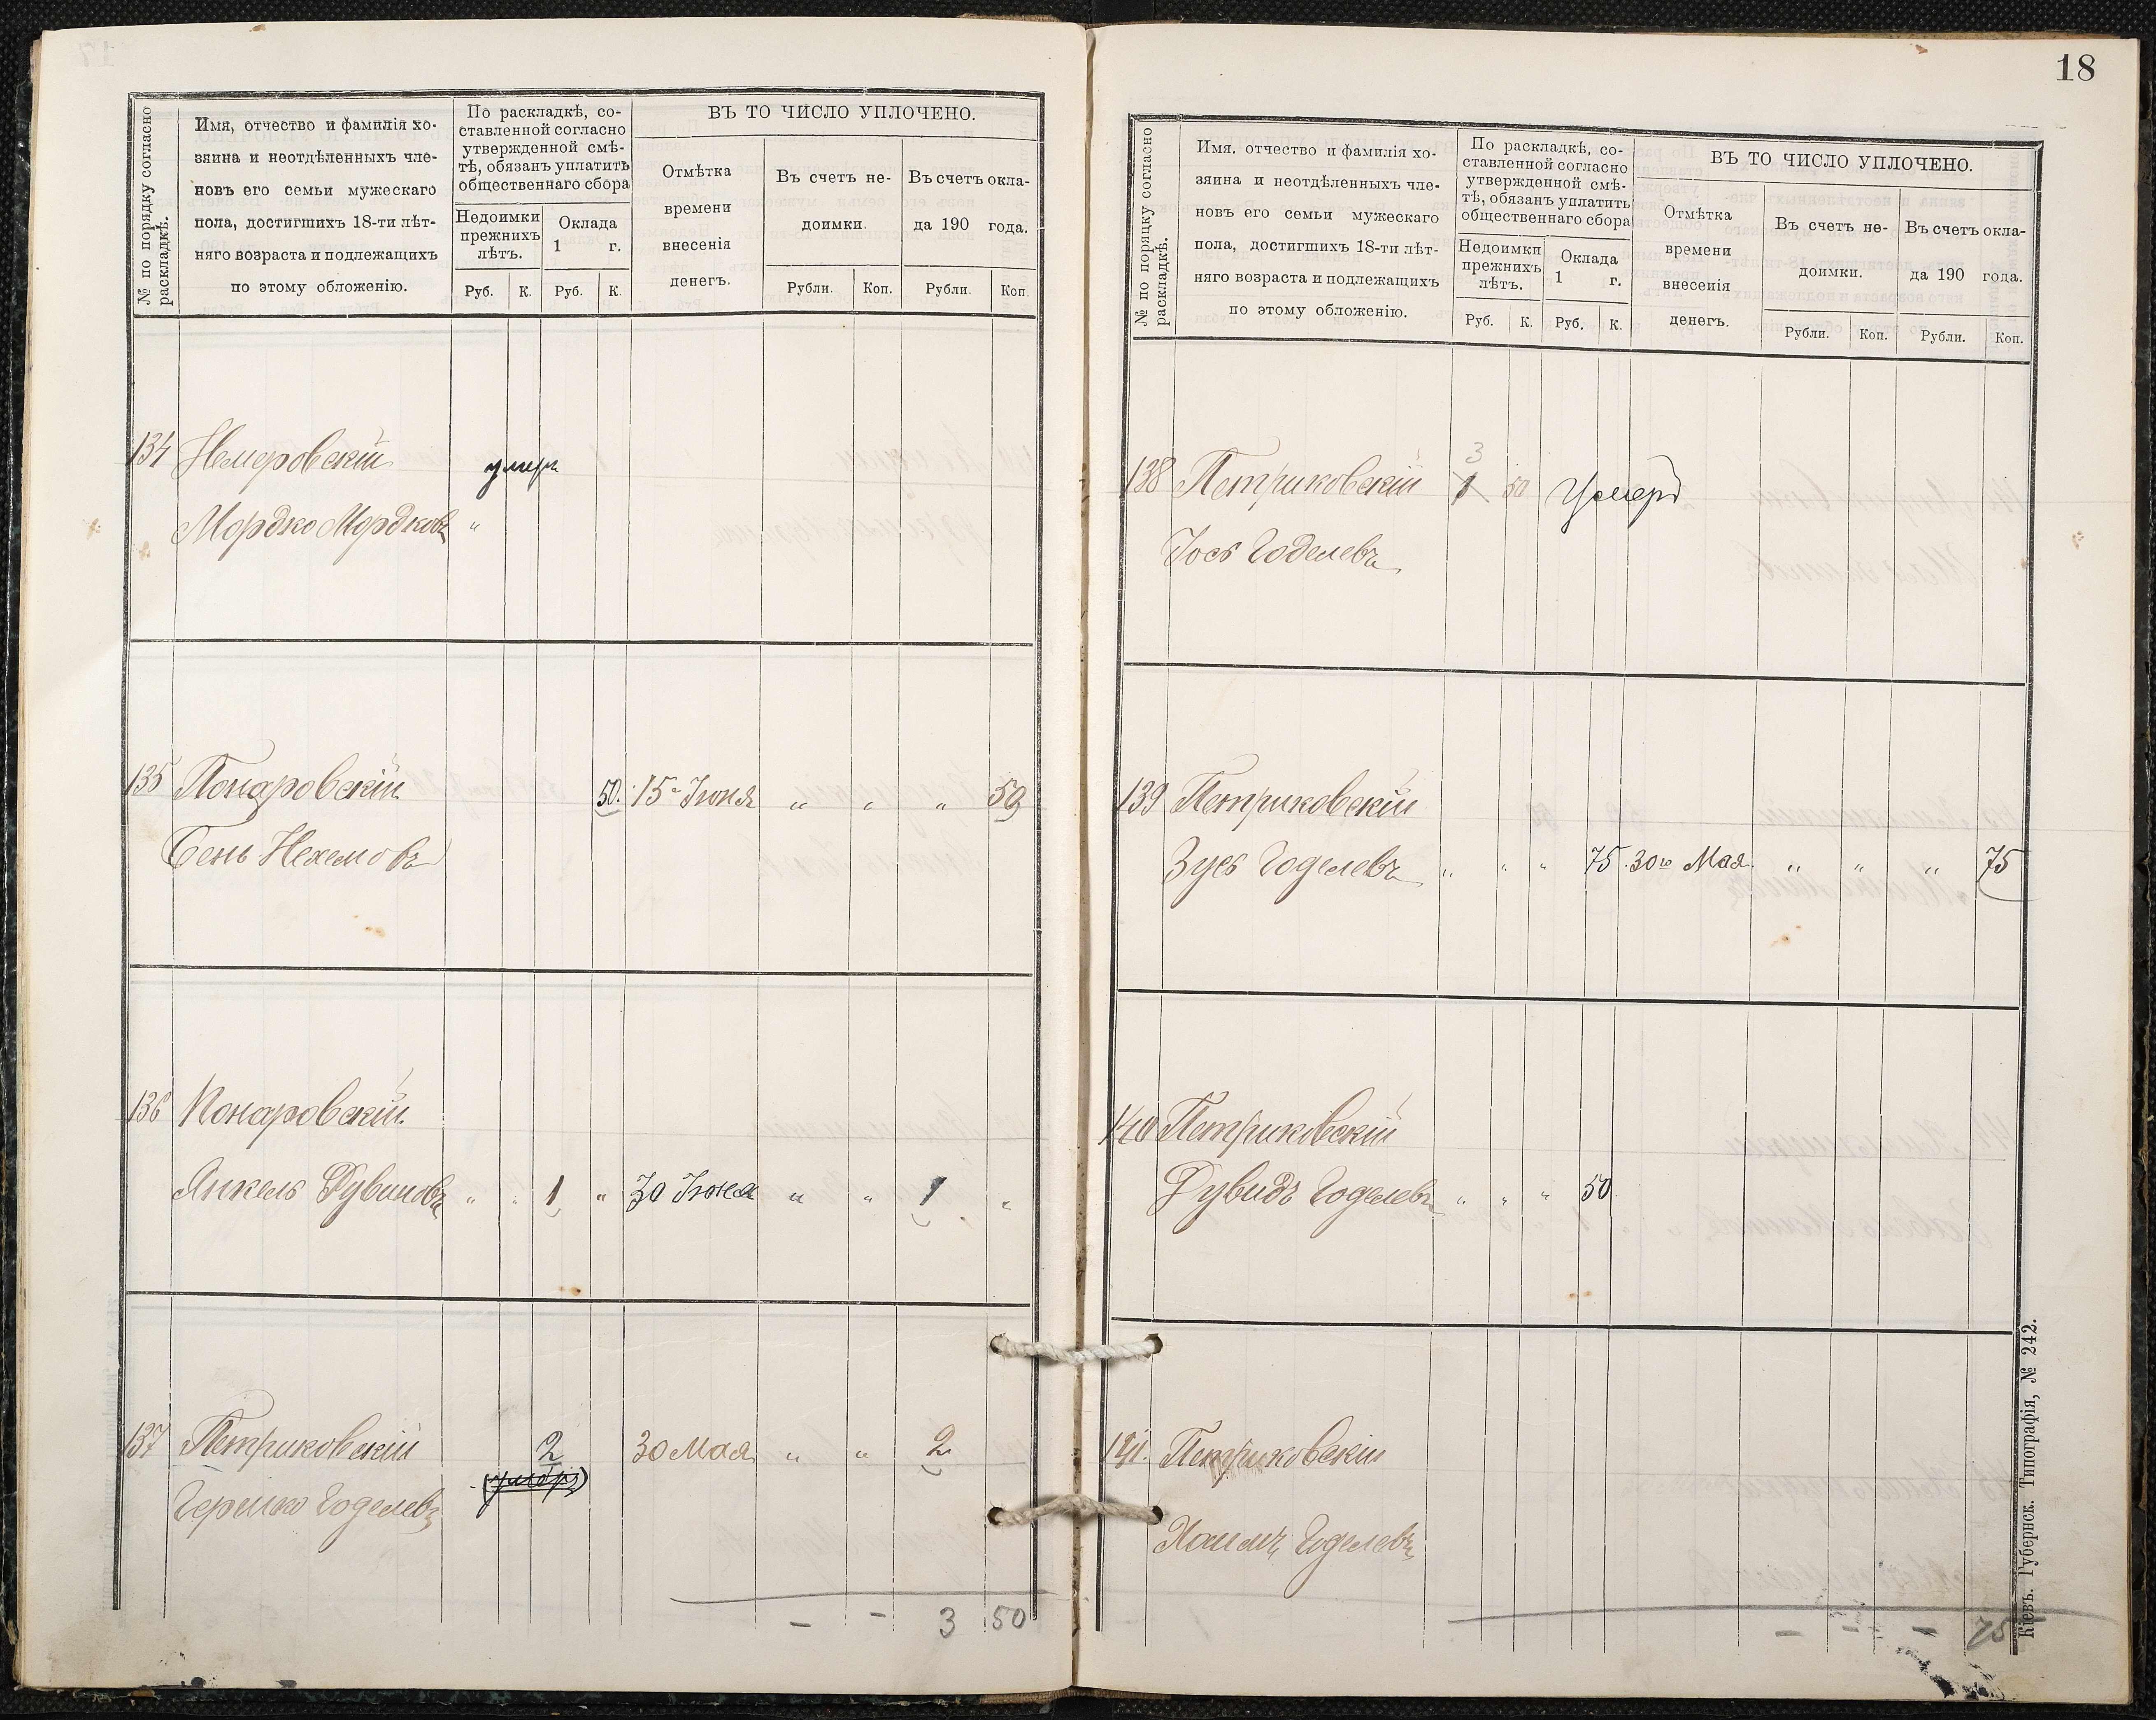 18
№ по порядку согласно
раскладкѣ.
Имя, отчество и фамилія хо-
зяина и неотдѣленныхъ чле-
новъ его семьи мужескаго
пола, достигшихъ 18-ти лѣт-
няго возраста и подлежащихъ
по этому обложенію.
По раскладкѣ, со-
ставленной согласно
утвержденной смѣ-
тѣ, обязанъ уплатить
общественнаго сбора
Недоимки
прежнихъ
лѣтъ.
Оклада
1 г.
Руб. К. Руб. К.
ВЪ ТО ЧИСЛО УПЛОЧЕНО.
Отмѣтка
времени
внесенія
денегъ.
Въ счетъ не-
доимки.
Въ счетъ окла-
да 190 года.
Рубли. Коп. Рубли. Коп.
134 Немеровскій умеръ
Мордко Мордковъ "
135 Понаровскій 50. 15го Іюня " " " 50
Бень Нехемовъ
136 Понаровскій.
Янкель Дувиновъ " " 1 " 30 Іюня " " 1 "
137 Петриковскій 2 30 Мая " " 2
Гершко Годелевъ (умеръ)
- - 3 50
№ по порядку согласно
раскладкѣ.
Имя. отчество и фамилія хо-
зяина и неотдѣленныхъ чле-
новъ его семьи мужескаго
пола, достигшихъ 18-ти лѣт-
няго возраста и подлежащихъ
по этому обложенію.
По раскладкѣ, со-
ставленной согласно
утвержденной смѣ-
тѣ, обязанъ уплатить
общественнаго сбора
Недоимки
прежнихъ
лѣтъ.
Оклада
1 г.
Руб. К. Руб. К.
ВЪ ТО ЧИСЛО УПЛОЧЕНО.
Отмѣтка
времени
внесенія
денегъ.
Въ счетъ не-
доимки.
Въ счетъ окла-
да 190 года.
Рубли. Коп. Рубли. Коп.
3
138 Петриковскій 1 50 Умеръ
Іось Годелевъ
139 Петриковскій
Зусь Годелевъ " " " 75. 30го Мая " " " 75
140 Петриковскій
Дувидъ Годелевъ " " " 50
141. Петриковскій
Хаимъ Годелевъ
- - - 75
Кіевъ. Губернск. Типографія, № 242.